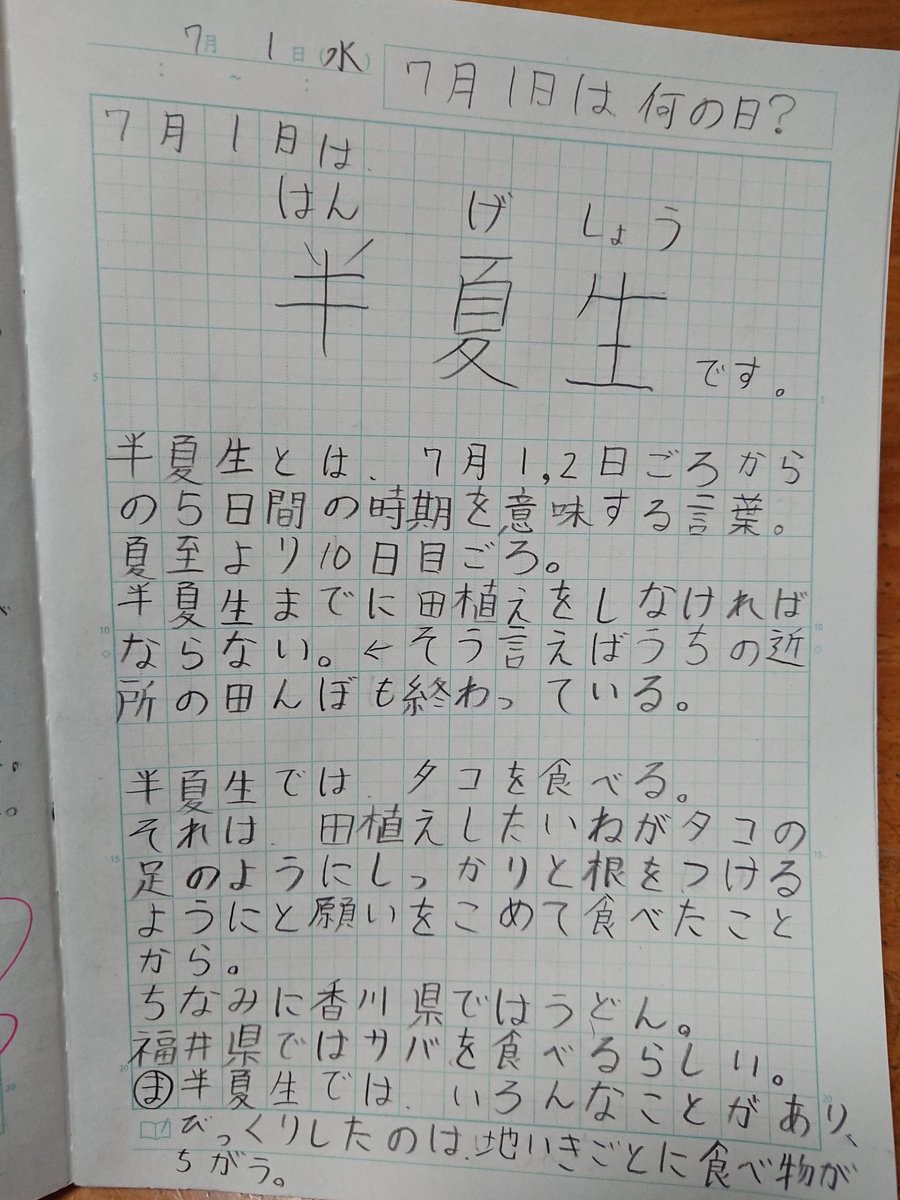 7月 1日(水)
7月1日は何の日?
7月1日は、
はん げ しょう
半夏生です。
半夏生とは、7月1,2日ごろから
の5日間の時期を意味する言葉。
夏至より10日目ごろ。
半夏生までに田植えをしなければ
ならない。←そう言えばうちの近
所の田んぼも終わっている。
半夏生では、タコを食べる。
それは、田植えしたいねがタコの
足のようにしっかりと根をつける
ようにと願いをこめて食べたこと
から。
ちなみに香川県ではうどん。
福井県ではサバを食べるらしい。
ま 半夏生では、いろんなことがあり、
びっくりしたのは、地いきごとに食べ物が
ちがう。